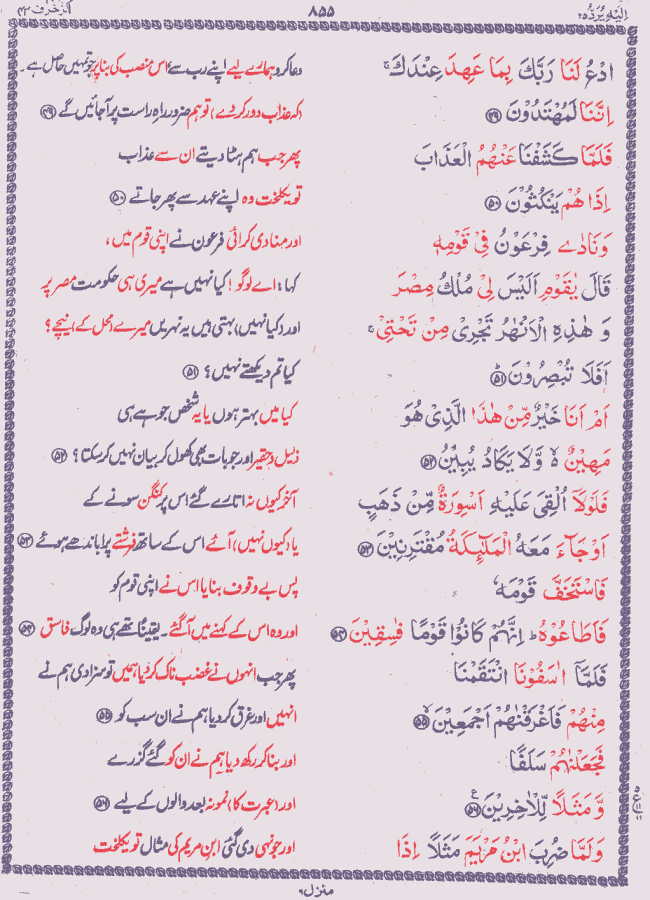 اِلَيْهِ يُرَدُّ ٢٥ ٨٥٥ الزخرف ٤٣
ادْعُ لَنَا رَبَّكَ بِمَا عَهِدَ عِنْدَكَ ۚ دعا کرو ہمارے لیے اپنے رب سے اس منصب کی بنا پر جو تمہیں حاصل ہے۔
اِنَّنَا لَمُهْتَدُوْنَ ﴿۴۹﴾ (کہ عذاب دور کر دے) تو ہم ضرور راہِ راست پر آجائیں گے ﴿۴۹﴾
فَلَمَّا كَشَفْنَا عَنْهُمُ الْعَذَابَ پھر جب ہم ہٹا دیتے ان سے عذاب
اِذَا هُمْ يَنْكُثُوْنَ ﴿۵۰﴾ تو یکلخت وہ اپنے عہد سے پھر جاتے ﴿۵۰﴾
وَنَادٰى فِرْعَوْنُ فِيْ قَوْمِهٖ اور منادی کرائی فرعون نے اپنی قوم میں،
قَالَ يٰقَوْمِ اَلَيْسَ لِيْ مُلْكُ مِصْرَ کہا: اے لوگو! کیا نہیں ہے میری ہی حکومت مصر پر
وَ هٰذِهِ الْاَنْهٰرُ تَجْرِيْ مِنْ تَحْتِيْ ۚ اور (کیا نہیں) بہتی ہیں یہ نہریں میرے (محل کے) نیچے؟
اَفَلَا تُبْصِرُوْنَ ﴿۵۱﴾ؕ کیا تم دیکھتے نہیں؟ ﴿۵۱﴾
اَمْ اَنَا خَيْرٌ مِّنْ هٰذَا الَّذِيْ هُوَ کیا میں بہتر ہوں یا یہ شخص جو ہے ہی
مَهِيْنٌ ۙ۬ وَّلَا يَكَادُ يُبِيْنُ ﴿۵۲﴾ ذلیل و حقیر اور جو بات بھی کھول کر بیان نہیں کر سکتا؟ ﴿۵۲﴾
فَلَوْلَاۤ اُلْقِيَ عَلَيْهِ اَسْوِرَةٌ مِّنْ ذَهَبٍ آخر کیوں نہ اتارے گئے اس پر کنگن سونے کے
اَوْ جَآءَ مَعَهُ الْمَلٰٓىِٕكَةُ مُقْتَرِنِيْنَ ﴿۵۳﴾ یا (کیوں نہیں) آئے اس کے ساتھ فرشتے پرا باندھے ہوئے ﴿۵۳﴾
فَاسْتَخَفَّ قَوْمَهٗ پس بے وقوف بنایا اس نے اپنی قوم کو
فَاَطَاعُوْهُ ؕ اِنَّهُمْ كَانُوْا قَوْمًا فٰسِقِيْنَ ﴿۵۴﴾ اور وہ اس کے کہنے میں آگئے۔ یقیناً تھے ہی وہ لوگ فاسق ﴿۵۴﴾
فَلَمَّاۤ اٰسَفُوْنَا انْتَقَمْنَا پھر جب انہوں نے غضب ناک کر دیا ہمیں تو سزا دی ہم نے
مِنْهُمْ فَاَغْرَقْنٰهُمْ اَجْمَعِيْنَ ﴿۵۵﴾ۙ انہیں اور غرق کر دیا ہم نے ان سب کو ﴿۵۵﴾
فَجَعَلْنٰهُمْ سَلَفًا اور بنا کر رکھ دیا ہم نے ان کو گئے گزرے
وَّ مَثَلًا لِّلْاٰخِرِيْنَ ﴿۵۶﴾ اور (عبرت کا) نمونہ بعد والوں کے لیے ﴿۵۶﴾
وَلَمَّا ضُرِبَ ابْنُ مَرْيَمَ مَثَلًا اِذَا اور جونہی دی گئی ابنِ مریم کی مثال تو یکلخت
منزل ٦